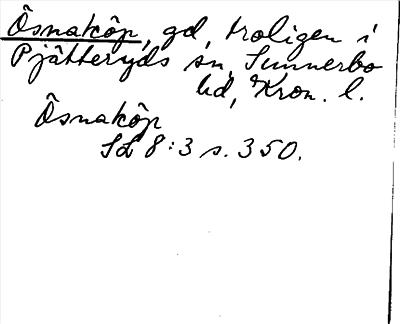 Ösnaköp, gd, troligen i
Pjätteryds sn, Sunnerbo
hd, Kron. l.
Ösnaköp
Sd 8:3 s. 350.